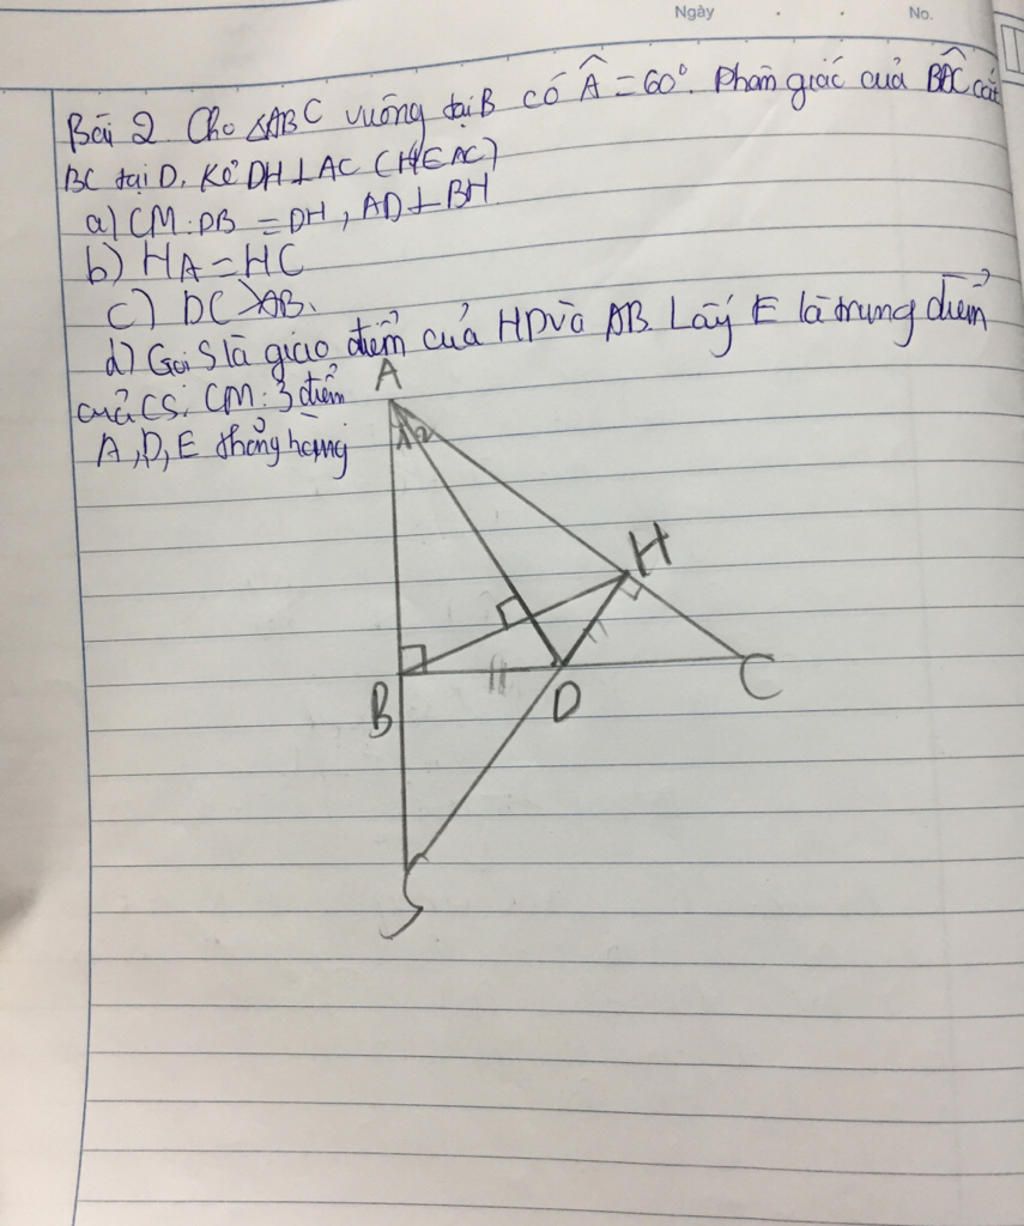 Ngày . . No.
Bài 2 Cho △ABC vuông tại B có Â = 60°. Phân giác của BÂC cắt
BC tại D. Kẻ DH⊥AC (H∈AC)
a) CM: DB = DH, AD⊥BH
b) HA = HC
c) DC > AB.
d) Gọi S là giao điểm của HD và AB. Lấy E là trung điểm
của CS. CM: 3 điểm
A, D, E thẳng hàng
A
1 2
H
B
D
C
S